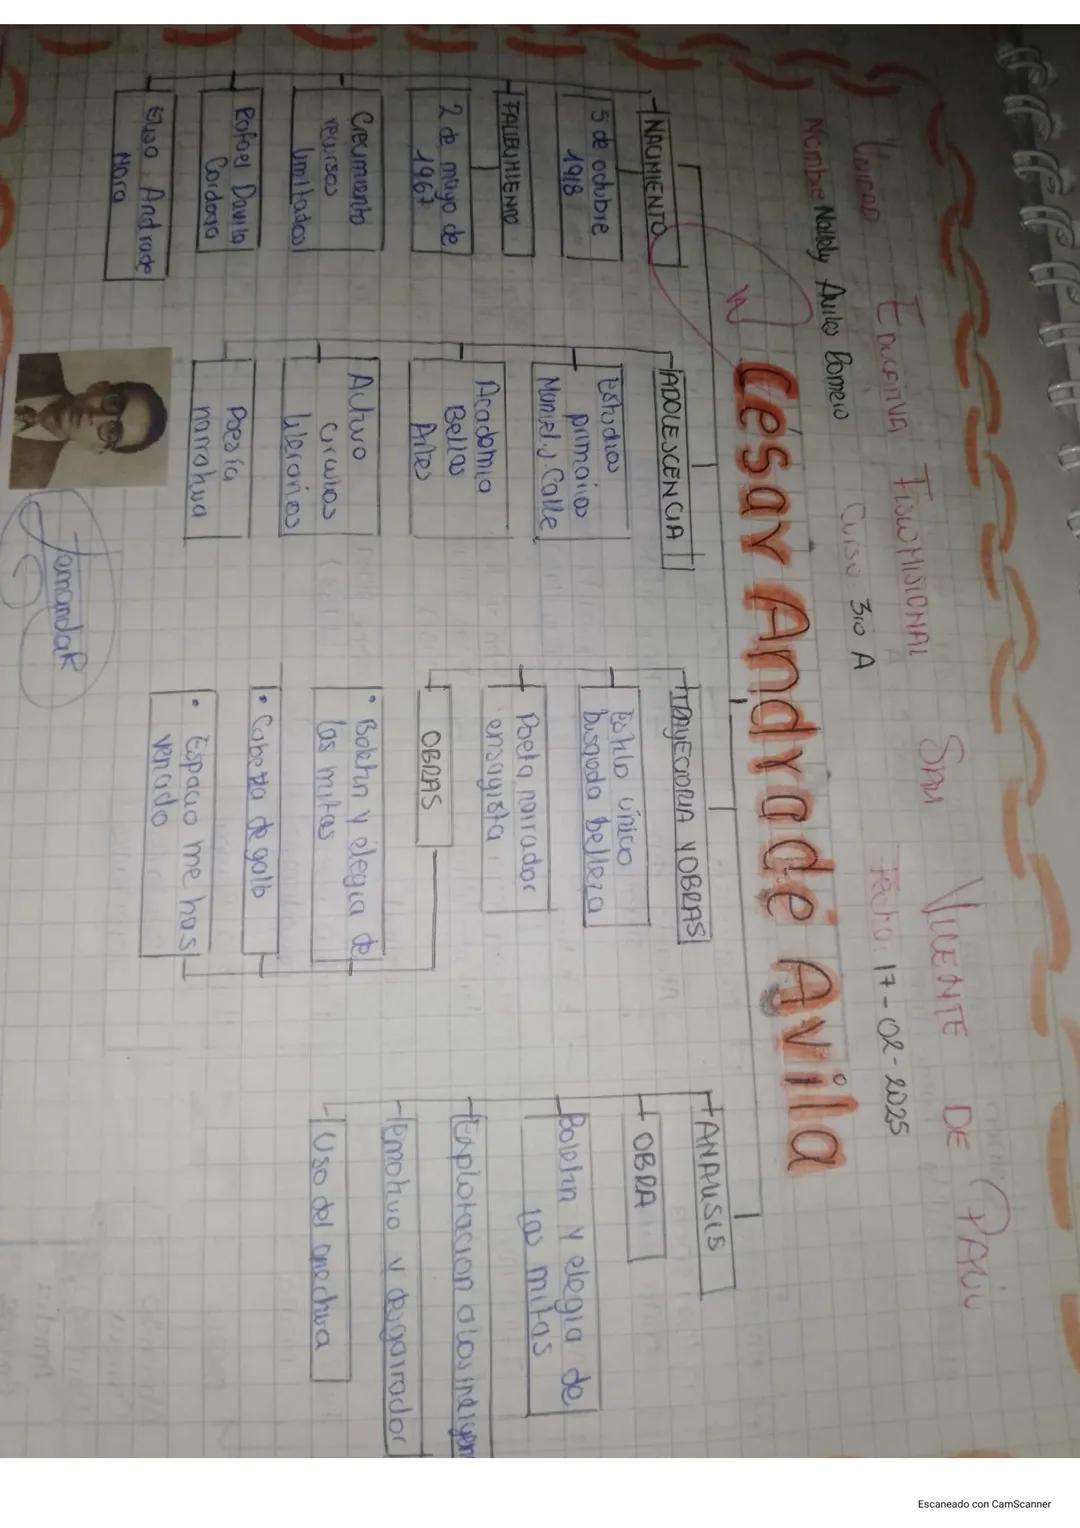 UNIDAD EDUCATIVA FISCOMISIONAL SAN VICENTE DE PAÚL
Nombre Nallely Aviles Romero Curso 3ro A Fecha: 17-02-2025
César Andrade Avilla
NACIMIENTO
5 de octubre
1918
FALLECIMIENTO
2 de mayo de
1967
Crecimiento
recursos
limitados
Rafael Davila
Cordova
Elisa Andrade
Mora
ADOLESCENCIA
Estudios
primarios
Manuel y Calle
Academia
Bellas
Artes
Activo
circulos
literarios
Poesía
narrativa
TRAYECTORIA Y OBRAS
Estilo único
buscada belleza
Poeta, narrador
ensayista
OBRAS
• Boletin y elegia de
las mitas
• Cabeza de gallo
• Espacio me has
vencido
ANALISIS
OBRA
Boletin y elegia de
las mitas
Explotacion a los indigen
emotivo y desgarrador
Uso del quechua
JamandaR
Escaneado con CamScanner